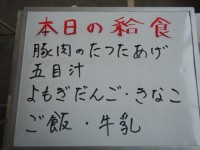 本日の給食
豚肉のたつたあげ
五目汁
よもぎだんご・きなこ
ご飯・牛乳